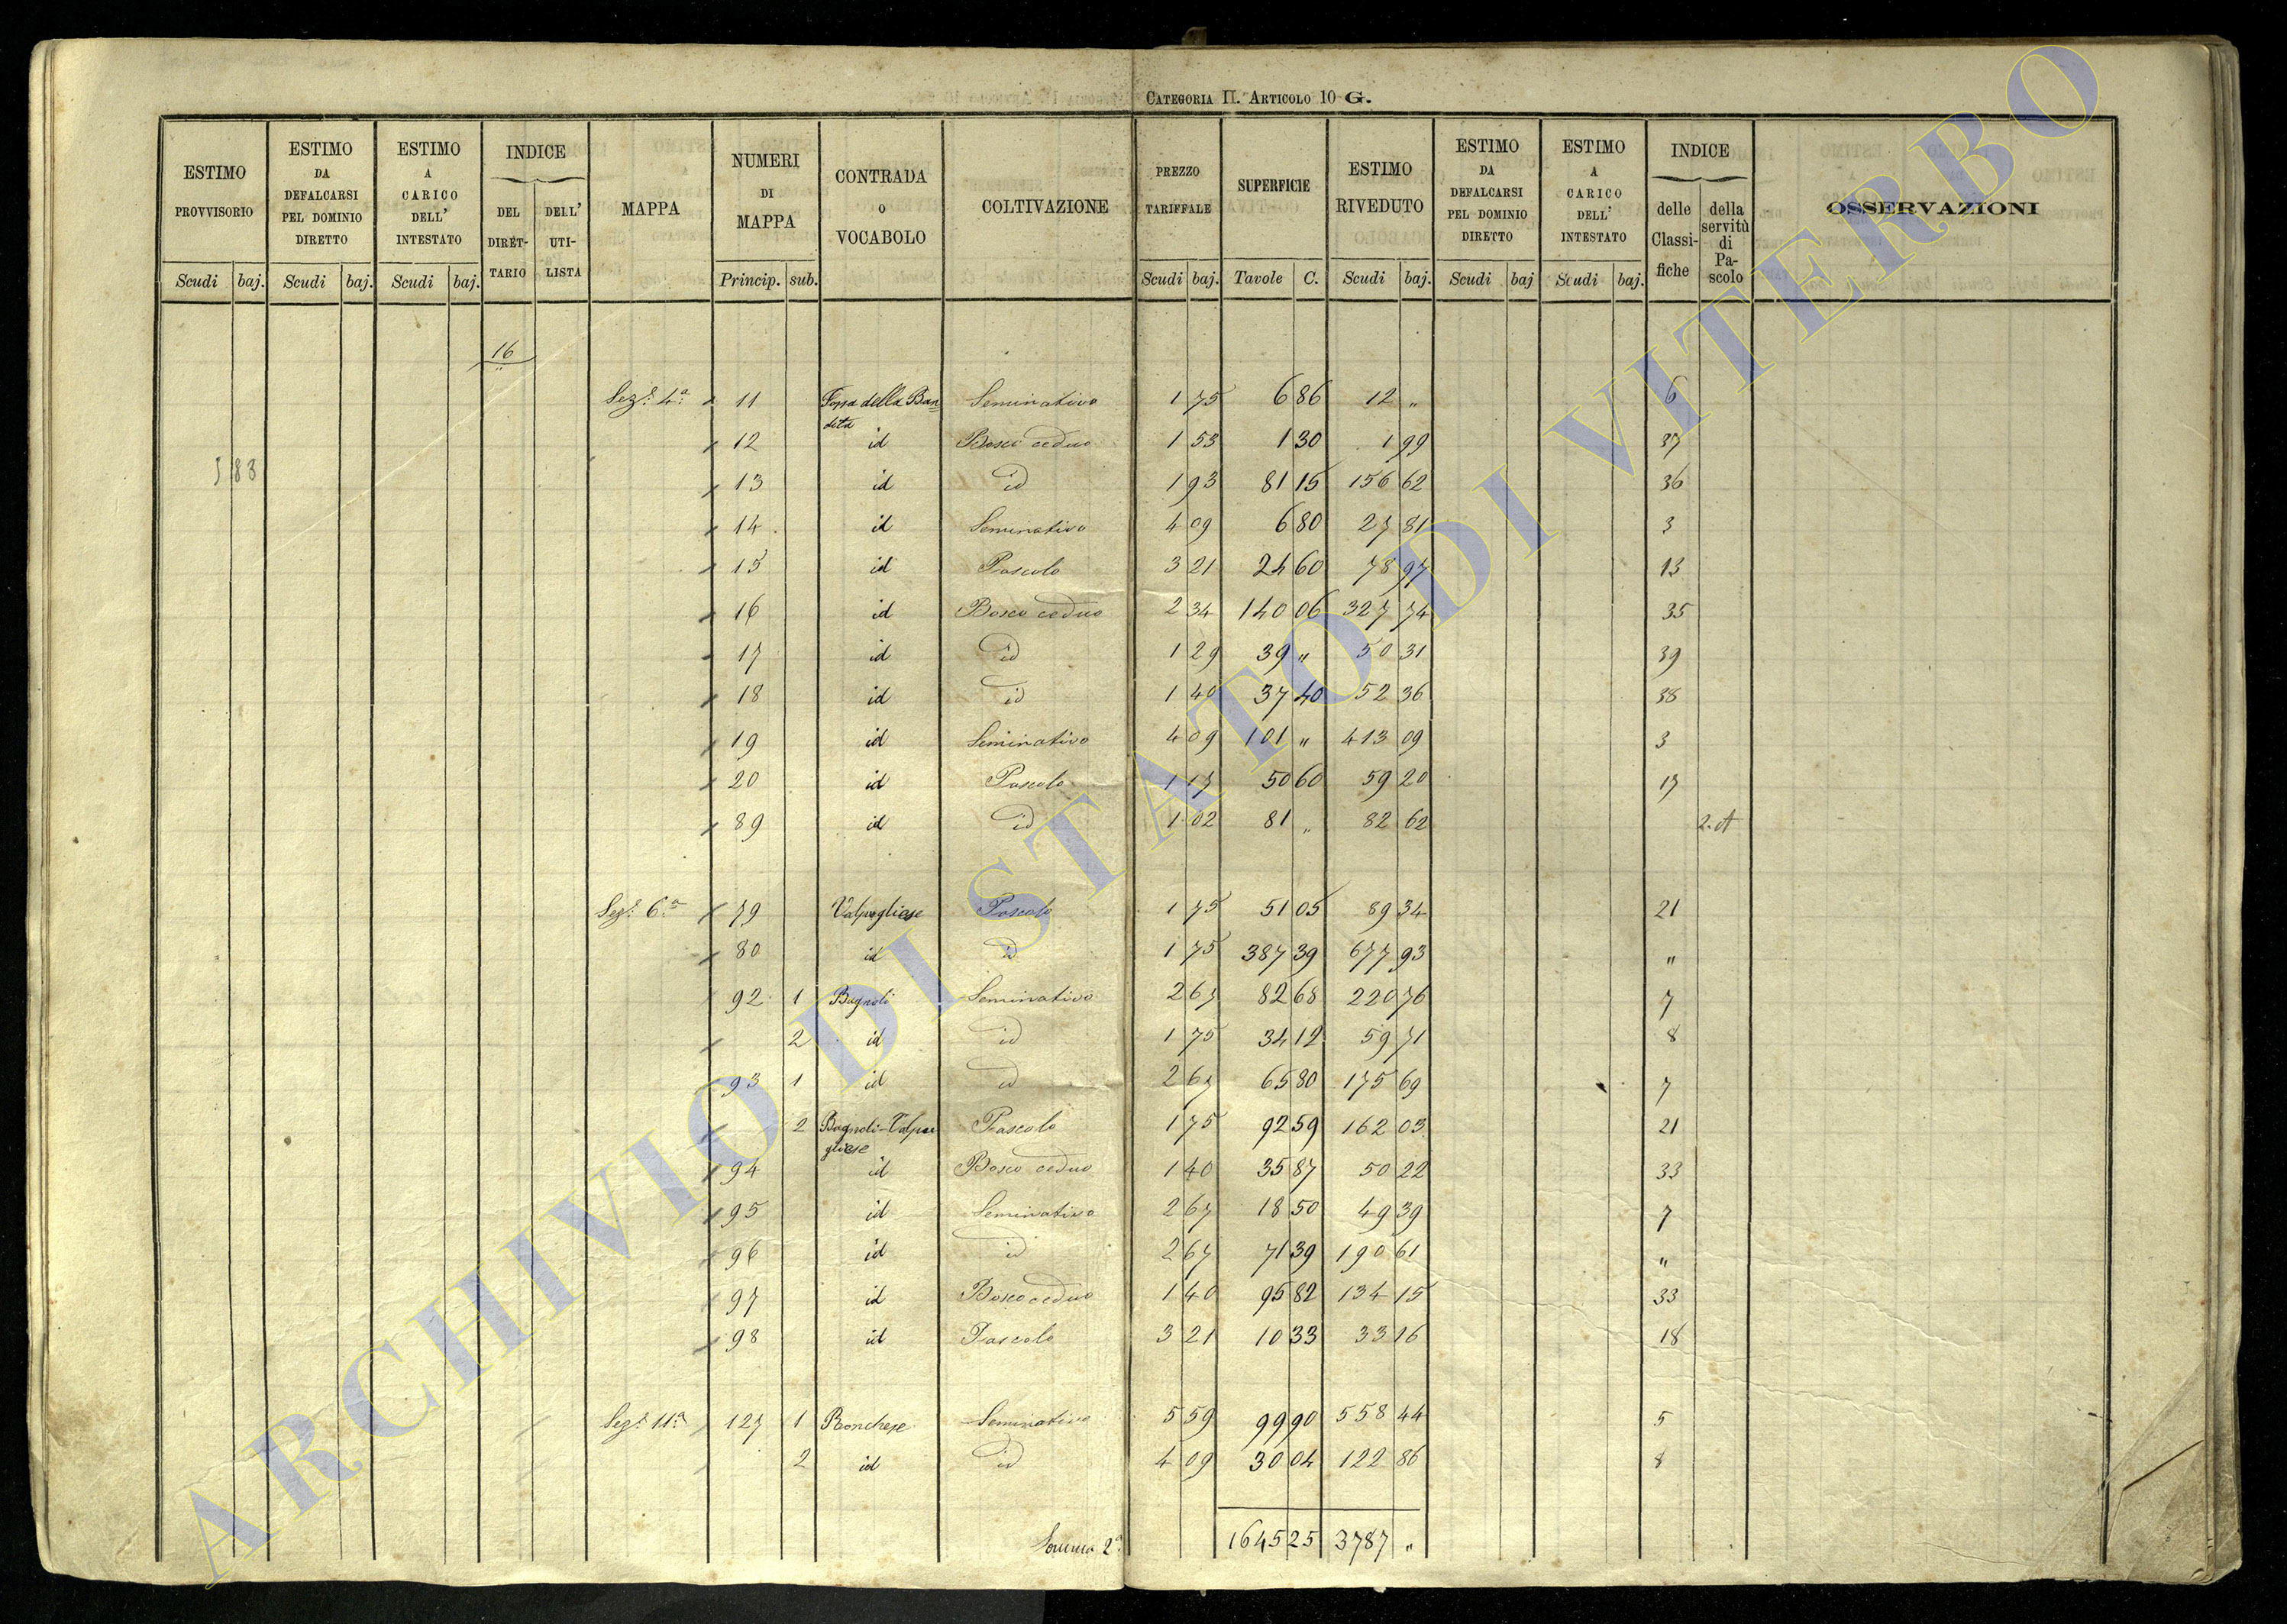 CATEGORIA II. ARTICOLO 10 G.
ESTIMO PROVVISORIO | ESTIMO DA DEFALCARSI PEL DOMINIO DIRETTO | ESTIMO A CARICO DELL' INTESTATO | INDICE DEL DIRET- TARIO | DELL' UTI- LISTA | MAPPA | NUMERI DI MAPPA | CONTRADA O VOCABOLO | COLTIVAZIONE | PREZZO TARIFFALE | SUPERFICIE | ESTIMO RIVEDUTO | ESTIMO DA DEFALCARSI PEL DOMINIO DIRETTO | ESTIMO A CARICO DELL' INTESTATO | INDICE delle Classi- fiche | della servitù di Pa- scolo | OSSERVAZIONI
Scudi baj. | Scudi baj. | Scudi baj. | Princip. sub. | Scudi baj. | Tavole C. | Scudi baj. | Scudi baj | Scudi baj.
16
Sez.e 4a 11 Fossa della Ban Seminativo 1 75 6 86 12 " 6
dita
12 id Bosco ceduo 1 53 1 30 1 99 37
13 id id 1 93 81 15 156 62 36
14 id Seminativo 4 09 6 80 27 81 3
15 id Pascolo 3 21 24 60 78 97 13
16 id Bosco ceduo 2 34 140 06 327 74 35
17 id id 1 29 39 " 50 31 39
18 id id 1 40 37 40 52 36 38
19 id Seminativo 4 09 101 " 413 09 3
20 id Pascolo 1 17 50 60 59 20 17
89 id id 1 02 81 " 82 62 2. A
Sez.e 6.a 79 Valpogliese Pascolo 1 75 51 05 89 34 21
80 id id 1 75 387 39 677 93 "
92 1 Bagnoli Seminativo 2 67 82 68 220 76 7
2 id id 1 75 34 12 59 71 8
93 1 id id 2 67 65 80 175 69 7
2 Bagnoli-Valpo Pascolo 1 75 92 59 162 03 21
gliese
94 id Bosco ceduo 1 40 35 87 50 22 33
95 id Seminativo 2 67 18 50 49 39 7
96 id id 2 67 71 39 190 61 "
97 id Bosco ceduo 1 40 95 82 134 15 33
98 id Pascolo 3 21 10 33 33 16 18
Sez.e 11.a 127 1 Ronchese Seminativo 5 59 99 90 558 44 5
2 id id 4 09 30 04 122 86 8
Somma 2a 1645 25 3787 "
ARCHIVIO DI STATO DI VITERBO